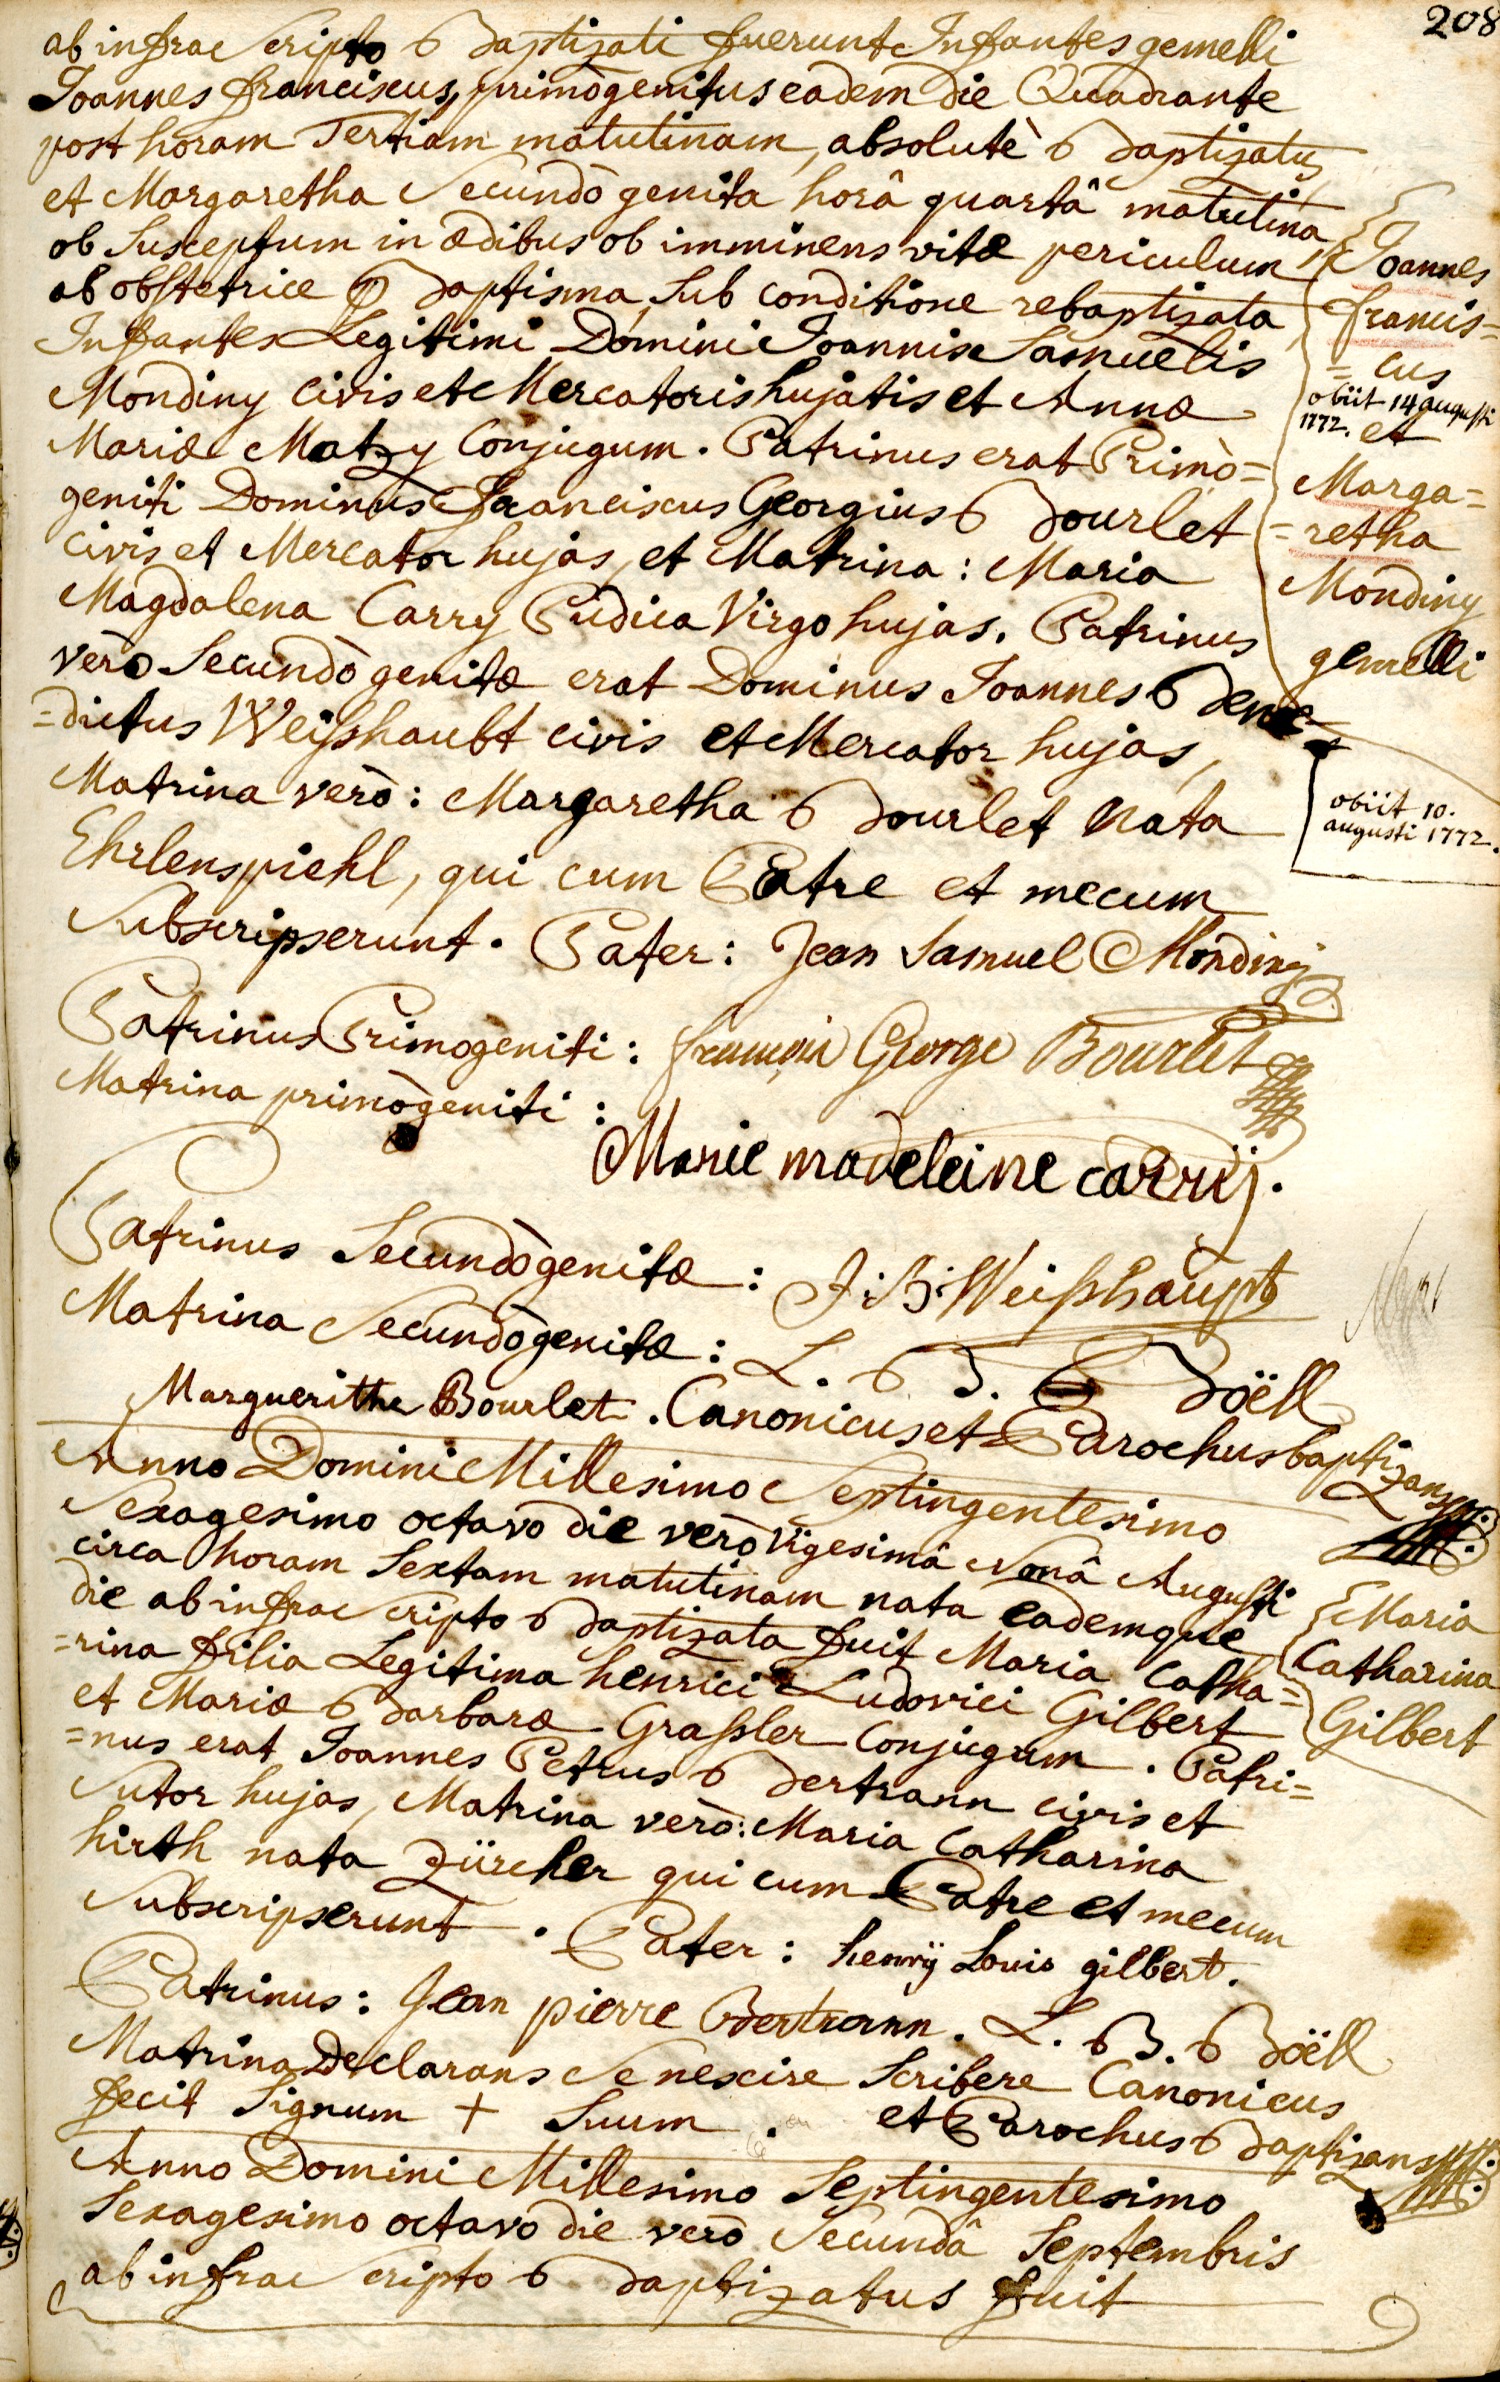 208
ab infra Scripto Baptizati fuerunt Infantes gemelli
Joannes franciscus, primògenitus eadem die Quadrante
post horam Tertiam matutinam, absolutè Baptizatus
et Margaretha Secundò genita horâ quartâ matutina
ob Susceptum in ædibus ob imminens vitæ periculum
ab obstetrice Baptisma, Sub conditione rebaptizata
Infantes Legitimi Domini Joannis Samuelis
Mondiny Civis et Mercatoris hujatis et Annæ
Mariæ Matzy Conjugum. Patrinus erat Primò=
geniti Dominus Franciscus Georgius Bourlet
Civis et Mercator hujas, et Matrina: Maria
Magdalena Carry Pudica Virgo hujas. Patrinus
verò Secundò genitæ erat Dominus Joannes Bene=
=dictus Weißhaubt civis et Mercator hujas,
Matrina verò: Margaretha Bourlet Nata
Ehrlenspiehl, qui cum Patre et mecum
Subscripserunt. Pater: Jean Samuel Mondiny
Patrinus Primogeniti: françois George Bourlet
Matrina primògeniti:
Marie madeleine carrij.
Patrinus Secundògenitæ: J: B: Weißhaupt
Matrina Secundògenitæ: L. B. Boëll
Marguerithe Bourlet. Canonicus et Parochus baptizans
Joannes
francis=
=cus
obiit 14 augusti
1772. et
Marga=
=retha
Mondiny
gemelli
obiit 10.
augusti 1772.
Anno Domini Millesimo Septingentesimo
Sexagesimo octavo die verò Vigesimâ Nonâ Augusti
circa horam Sextam matutinam nata eademque
die ab infra Scripto Baptizata fuit Maria Catha=
=rina filia Legitima henrici Ludovici Gilbert
et Mariæ Barbaræ Graßler Conjugum. Patri=
=nus erat Joannes Petrus Bertrann civis et
Sutor hujas, Matrina verò: Maria Catharina
hirth nata Zürcher qui cum Patre et mecum
Subscripserunt. Pater: henrÿ Louis gilbert.
Patrinus: Jean pierre Bertrann. L. B. Boëll
Matrina Declarans Se nescire Scribere Canonicus
fecit Signum + Suum. et Parochus Baptizans
Maria
Catharina
Gilbert
Anno Domini Millesimo Septingentesimo
Sexagesimo octavo die verò Secundâ Septembris
ab infra Scripto Baptizatus fuit